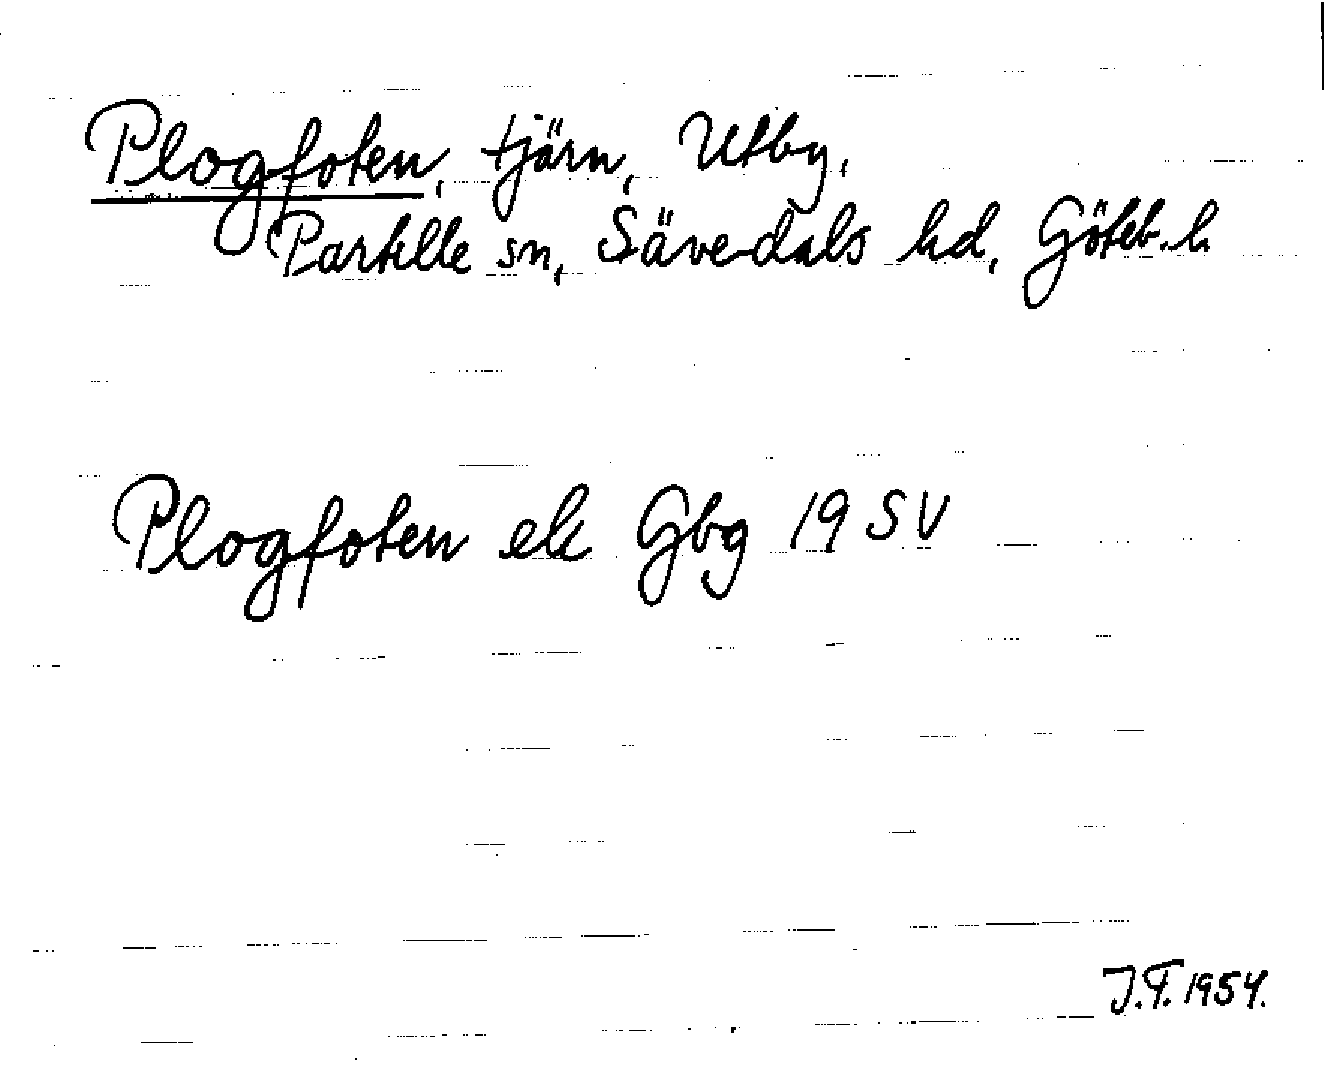 Plogfoten, tjärn, Utby,
Partille sn, Sävedals hd, Göteb. l.
Plogfoten ek Gbg 19 SV
J.F. 1954.